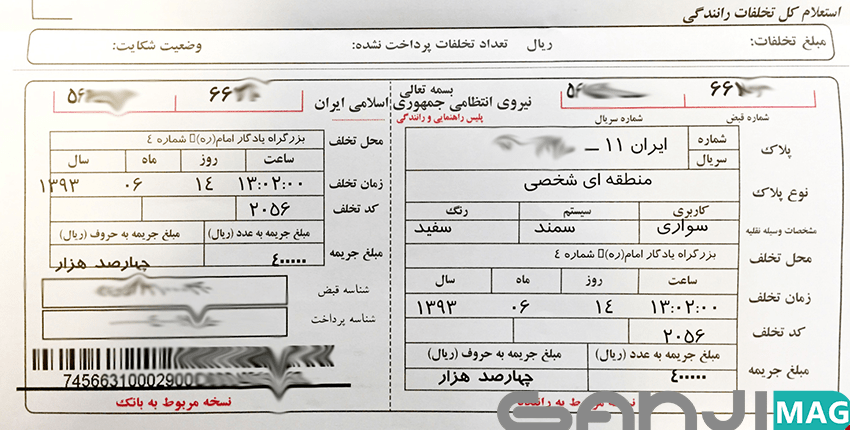 استعلام کل تخلفات رانندگی
مبلغ تخلفات: ریال تعداد تخلفات پرداخت نشده: وضعیت شکایت:
بسمه تعالی
نیروی انتظامی جمهوری اسلامی ایران
پلیس راهنمایی و رانندگی
۶۶
شماره قبض
۵۶
شماره سریال
پلاک
شماره
سریال
ایران ۱۱ –
نوع پلاک
منطقه ای شخصی
مشخصات وسیله نقلیه
کاربری سیستم رنگ
سواری سمند سفید
محل تخلف
بزرگراه یادگار امام(ره)▯ شماره ٤
زمان تخلف
ساعت روز ماه سال
۱۳:۰۲:۰۰ ۱۴ ۰۶ ۱۳۹۳
کد تخلف
۲۰۵۶
مبلغ جریمه
مبلغ جریمه به عدد (ریال) مبلغ جریمه به حروف (ریال)
٤۰۰۰۰۰ چهارصد هزار
نسخه مربوط به راننده
۶۶
۵۶
محل تخلف
بزرگراه یادگار امام(ره)▯ شماره ٤
زمان تخلف
ساعت روز ماه سال
۱۳:۰۲:۰۰ ۱۴ ۰۶ ۱۳۹۳
کد تخلف
۲۰۵۶
مبلغ جریمه
مبلغ جریمه به عدد (ریال) مبلغ جریمه به حروف (ریال)
٤۰۰۰۰۰ چهارصد هزار
شناسه قبض
شناسه پرداخت
74566310002900
نسخه مربوط به بانک
GANJI MAG